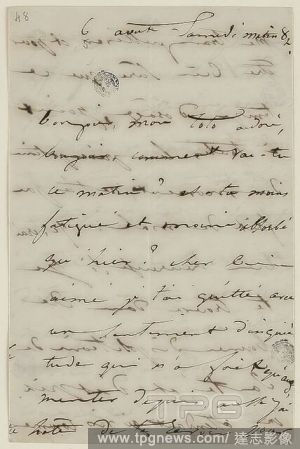 48
6 août Samedi matin 8h
Bonjour, mon Toto adoré,
bonjour comment vas-tu
ce matin? es-tu moins
fatigué et moins absorbé
qu'hier? cher bien
aimé je t'ai quitté avec
un sentiment d'inquié
tude qui n'a fait qu'aug
menter depuis
hâte de te
TPG
www.tpgnews.com / 達志影像